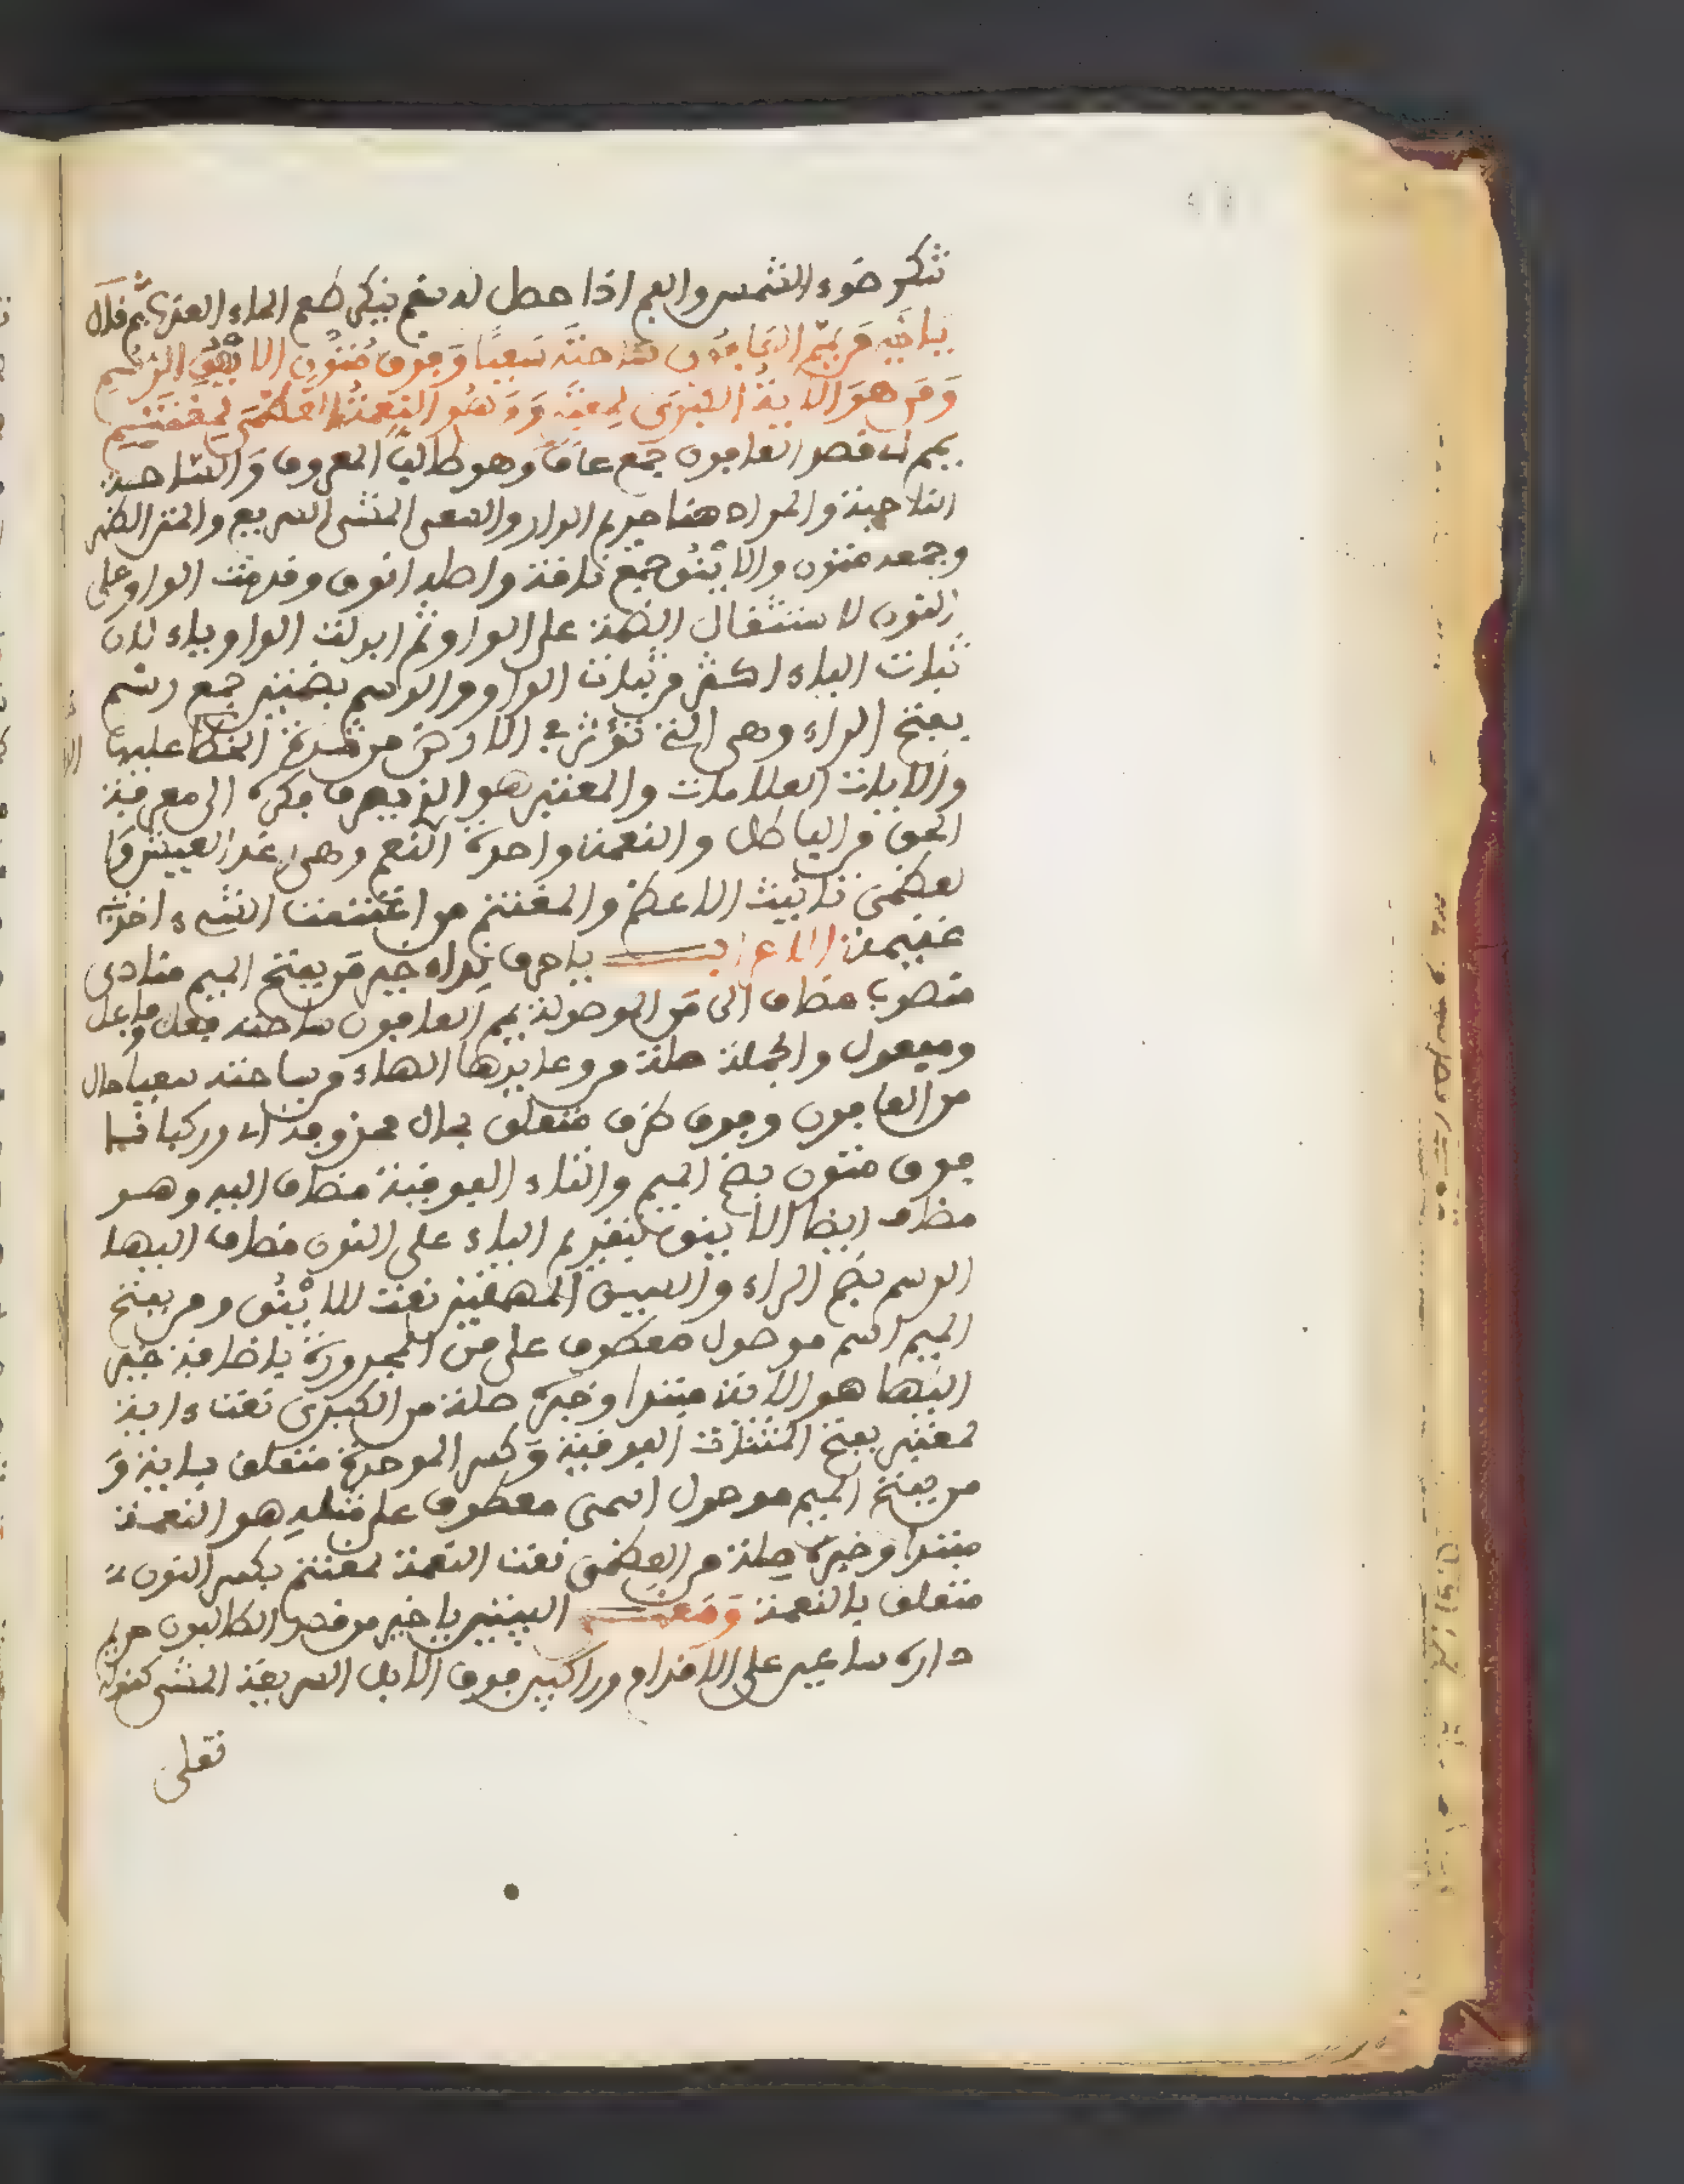 تنكر ضوء الشمس والفم اذا حصل له سقم ينكر طعم الماء العذب ثم قال
يا خير من يمم العافون ساحته سعيا وفوق متون الاينق الرسم
ومن هو الآية الكبرى لمعتبر ومن هو النعمة العظمى لمغتنم
يمم اى قصد العافون جمع عاف وهو طالب المعروف والساحة
الناحية والمراد هنا حريم الدار والسعى المشى السريع والمتن الظهر
وجمعه متون والاينق جمع ناقة واصله انوق وقدمت الواو على
النون لاستثقال الضمة على الواو ثم ابدلت الواو ياء لان
ثبات الياء اكثر من ثبات الواو والرسم بضمتين جمع رسم
بفتح الراء وهى التى تؤثر فى الارض من شدة الخطا عليها
والايات العلامات والمعتبر هو الذى يصرف فكره الى معرفة
الحق من الباطل والنعمة واحدة النعم وهى رغد العيش وا
لعظمى تانيث الاعظم والمغتنم من اغتنمت الشىء اخذته
غنيمة الاعراب يا حرف نداء خير من بفتح الميم منادى
منصوب مضاف الى من الموصولة يمم العافون ساحته فعل وفاعل
ومفعول والجملة صلة من وعايدها الهاء من ساحته سعيا حال
من العافون وفوق ظرف متعلق بحال محذوفة اى وركبانا
فوق متون بضم الميم والتاء الفوقية مضاف اليه وهو
مضاف ايضا الاينق بتقديم الياء على النون مضاف اليها
الرسم بضم الراء والسين المهملتين نعت للاينق ومن بفتح
الميم اسم موصول معطوف على من المجرورة باضافة خير
اليها هو الاية مبتدا وخبره صلة من الكبرى نعت ءاية
لمعتبر بفتح المثنات الفوقية وكسر الموحدة متعلق باية و
من بفتح الميم موصول اسمى معطوف على مثله هو النعمة
مبتدا وخبره صلة من العظمى نعت النعمة لمغتنم بكسر النون
متعلق بالنعمة ومعنى البيتين يا خير من قصد الطالبون حريم
داره ساعين على الاقدام وراكبين فوق الابل السريعة المشى كقوله
تعلى